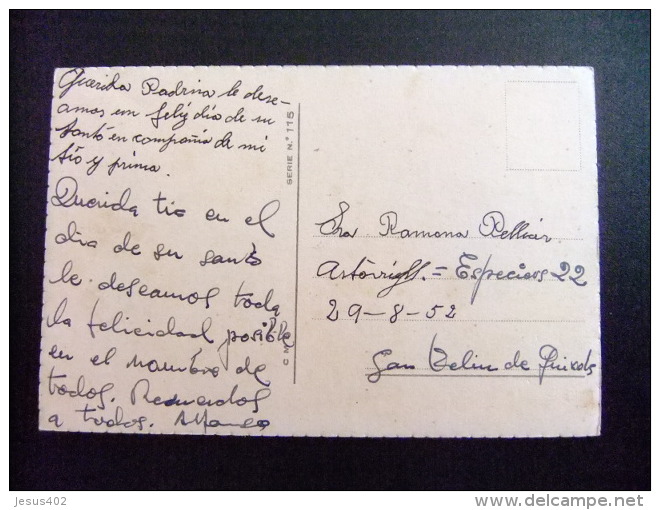 Querida Padrina le dese-
amos un feliz día de su
santo en compañia de mi
tio y prima.
Querida tia en el
dia de su santo
le deseamos toda
la felicidad posible
en el nombre de
todos. Recuerdos
a todos. Alfonso
SERIE N.º 115
C M
Sra Ramona Pellicer
= Especiers 22
29-8-52
San Feliu de Guixols
Jesus402
www.delcampe.net